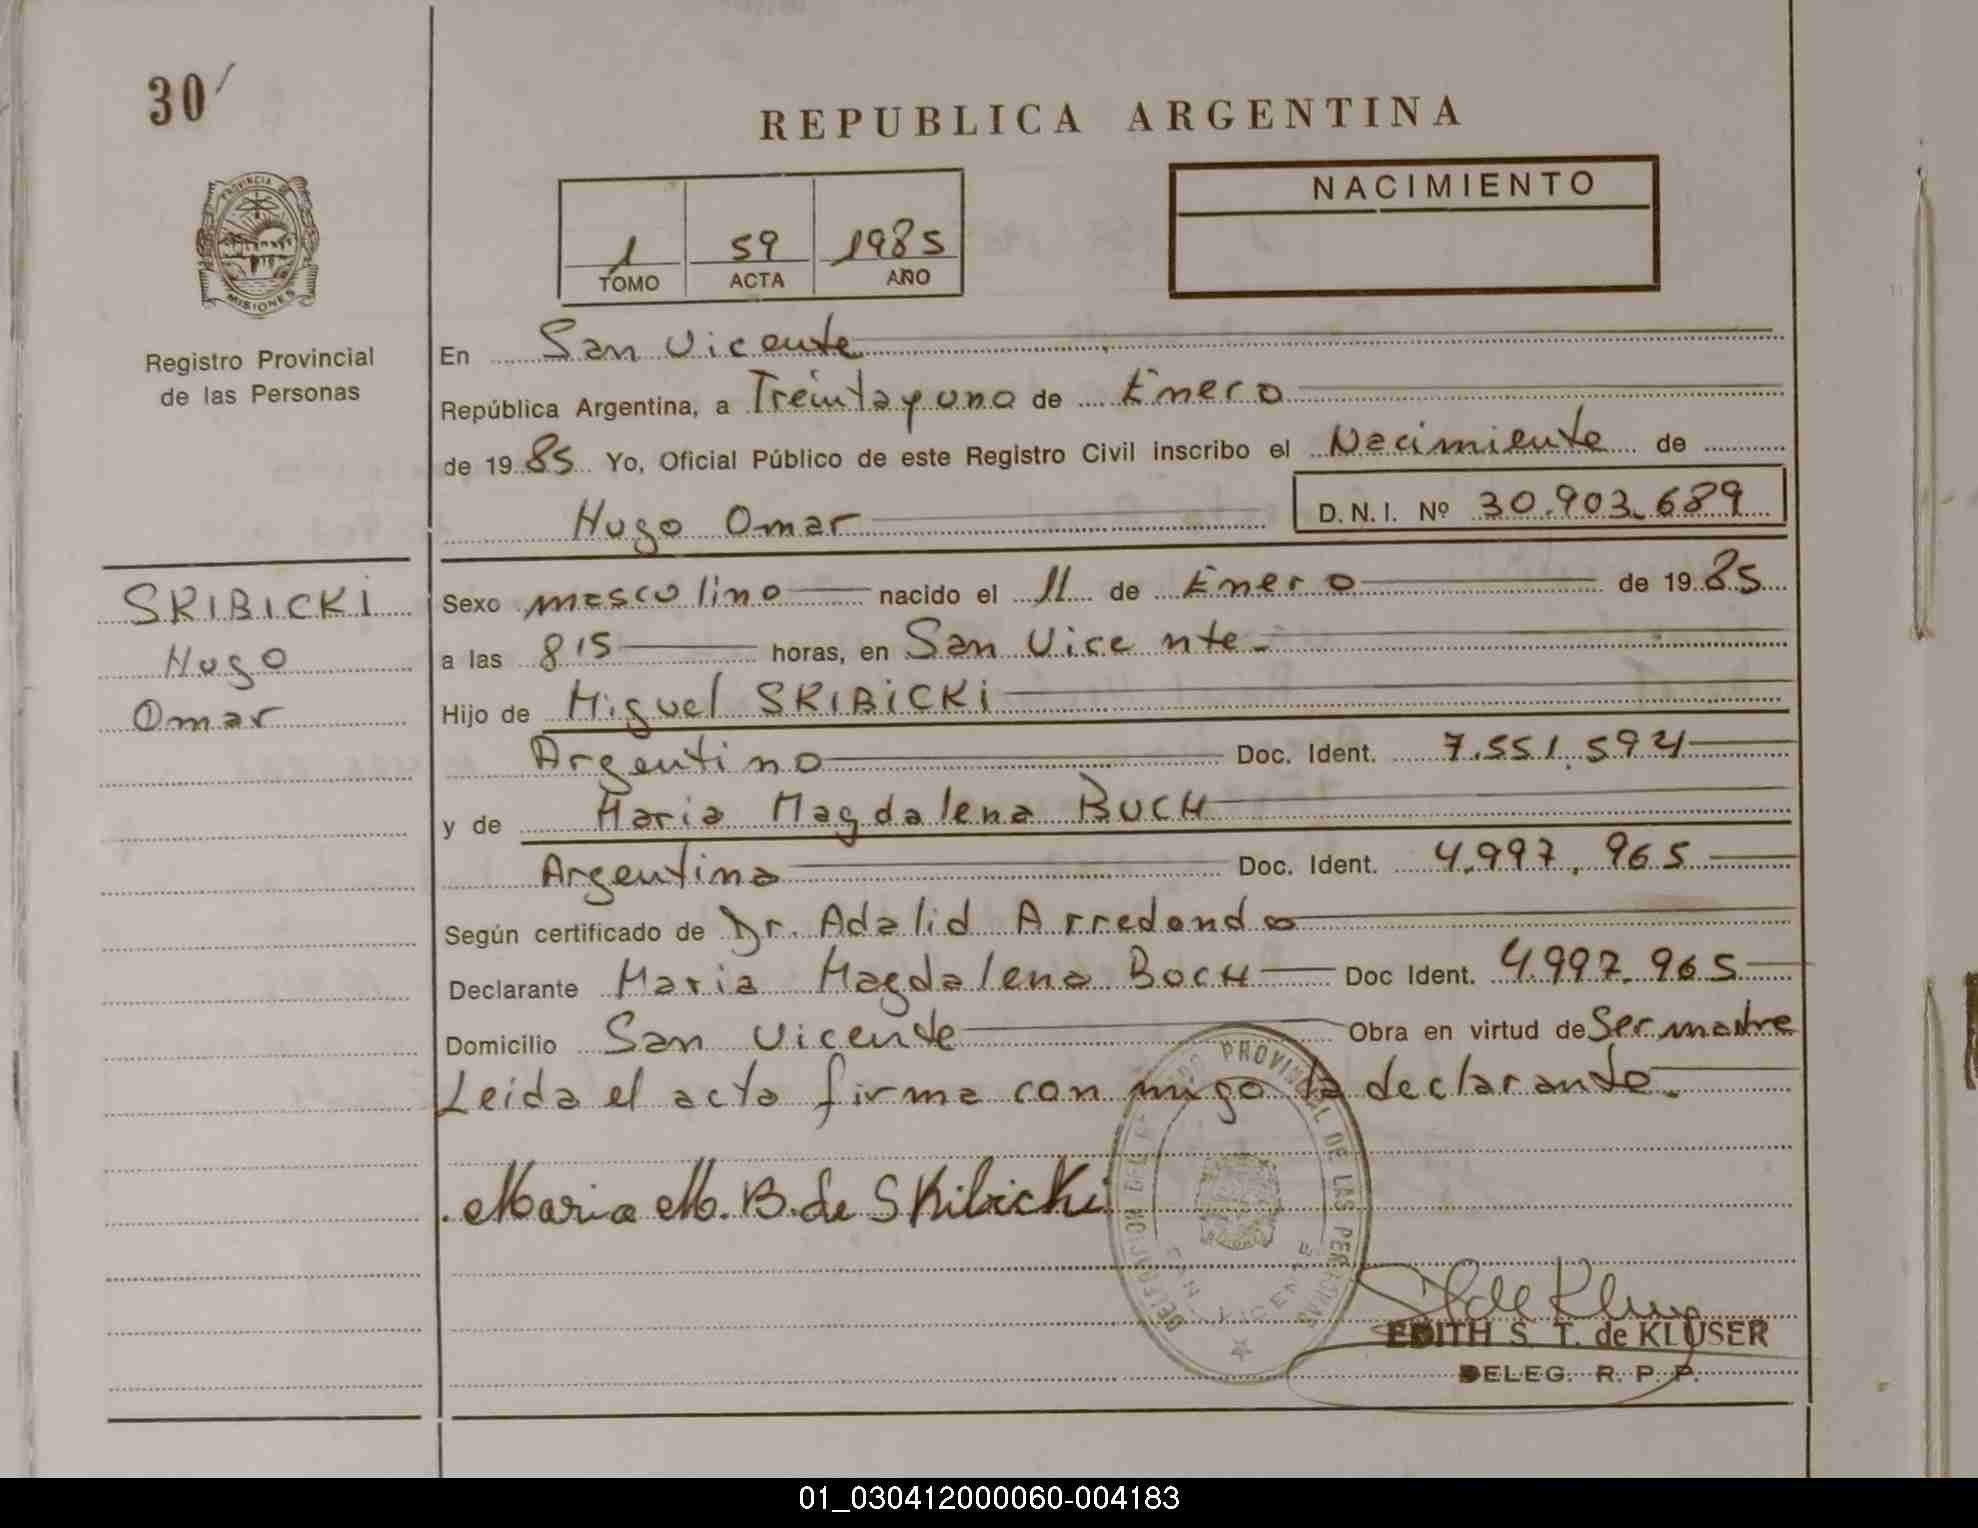 30
REPUBLICA ARGENTINA
NACIMIENTO
1 59 1985
TOMO ACTA AÑO
PROVINCIA DE
MISIONES
Registro Provincial
de las Personas
En San Vicente
República Argentina, a Treintayuno de Enero
de 1985 Yo, Oficial Público de este Registro Civil inscribo el Nacimiento de
Hugo Omar D.N.I. Nº 30.903.689
SKIBICKI
Hugo
Omar
Sexo masculino nacido el 11 de Enero de 1985
a las 8 15 horas, en San Vicente
Hijo de Miguel SKIBICKI
Argentino Doc. Ident. 7.551.594
y de Maria Magdalena BUCH
Argentina Doc. Ident. 4.997.965
Según certificado de Dr. Adalid Arredondo
Declarante Maria Magdalena BOCH Doc Ident. 4.997.965
Domicilio San Vicente Obra en virtud de Ser madre
Leida el acta firma con migo la declarante.
Maria M. B. de SKibicki
PROVINCIAL DE LAS PERSONAS
SAN VICENTE
EDITH S. T. de KLUSER
DELEG. R. P. P.
01_030412000060-004183